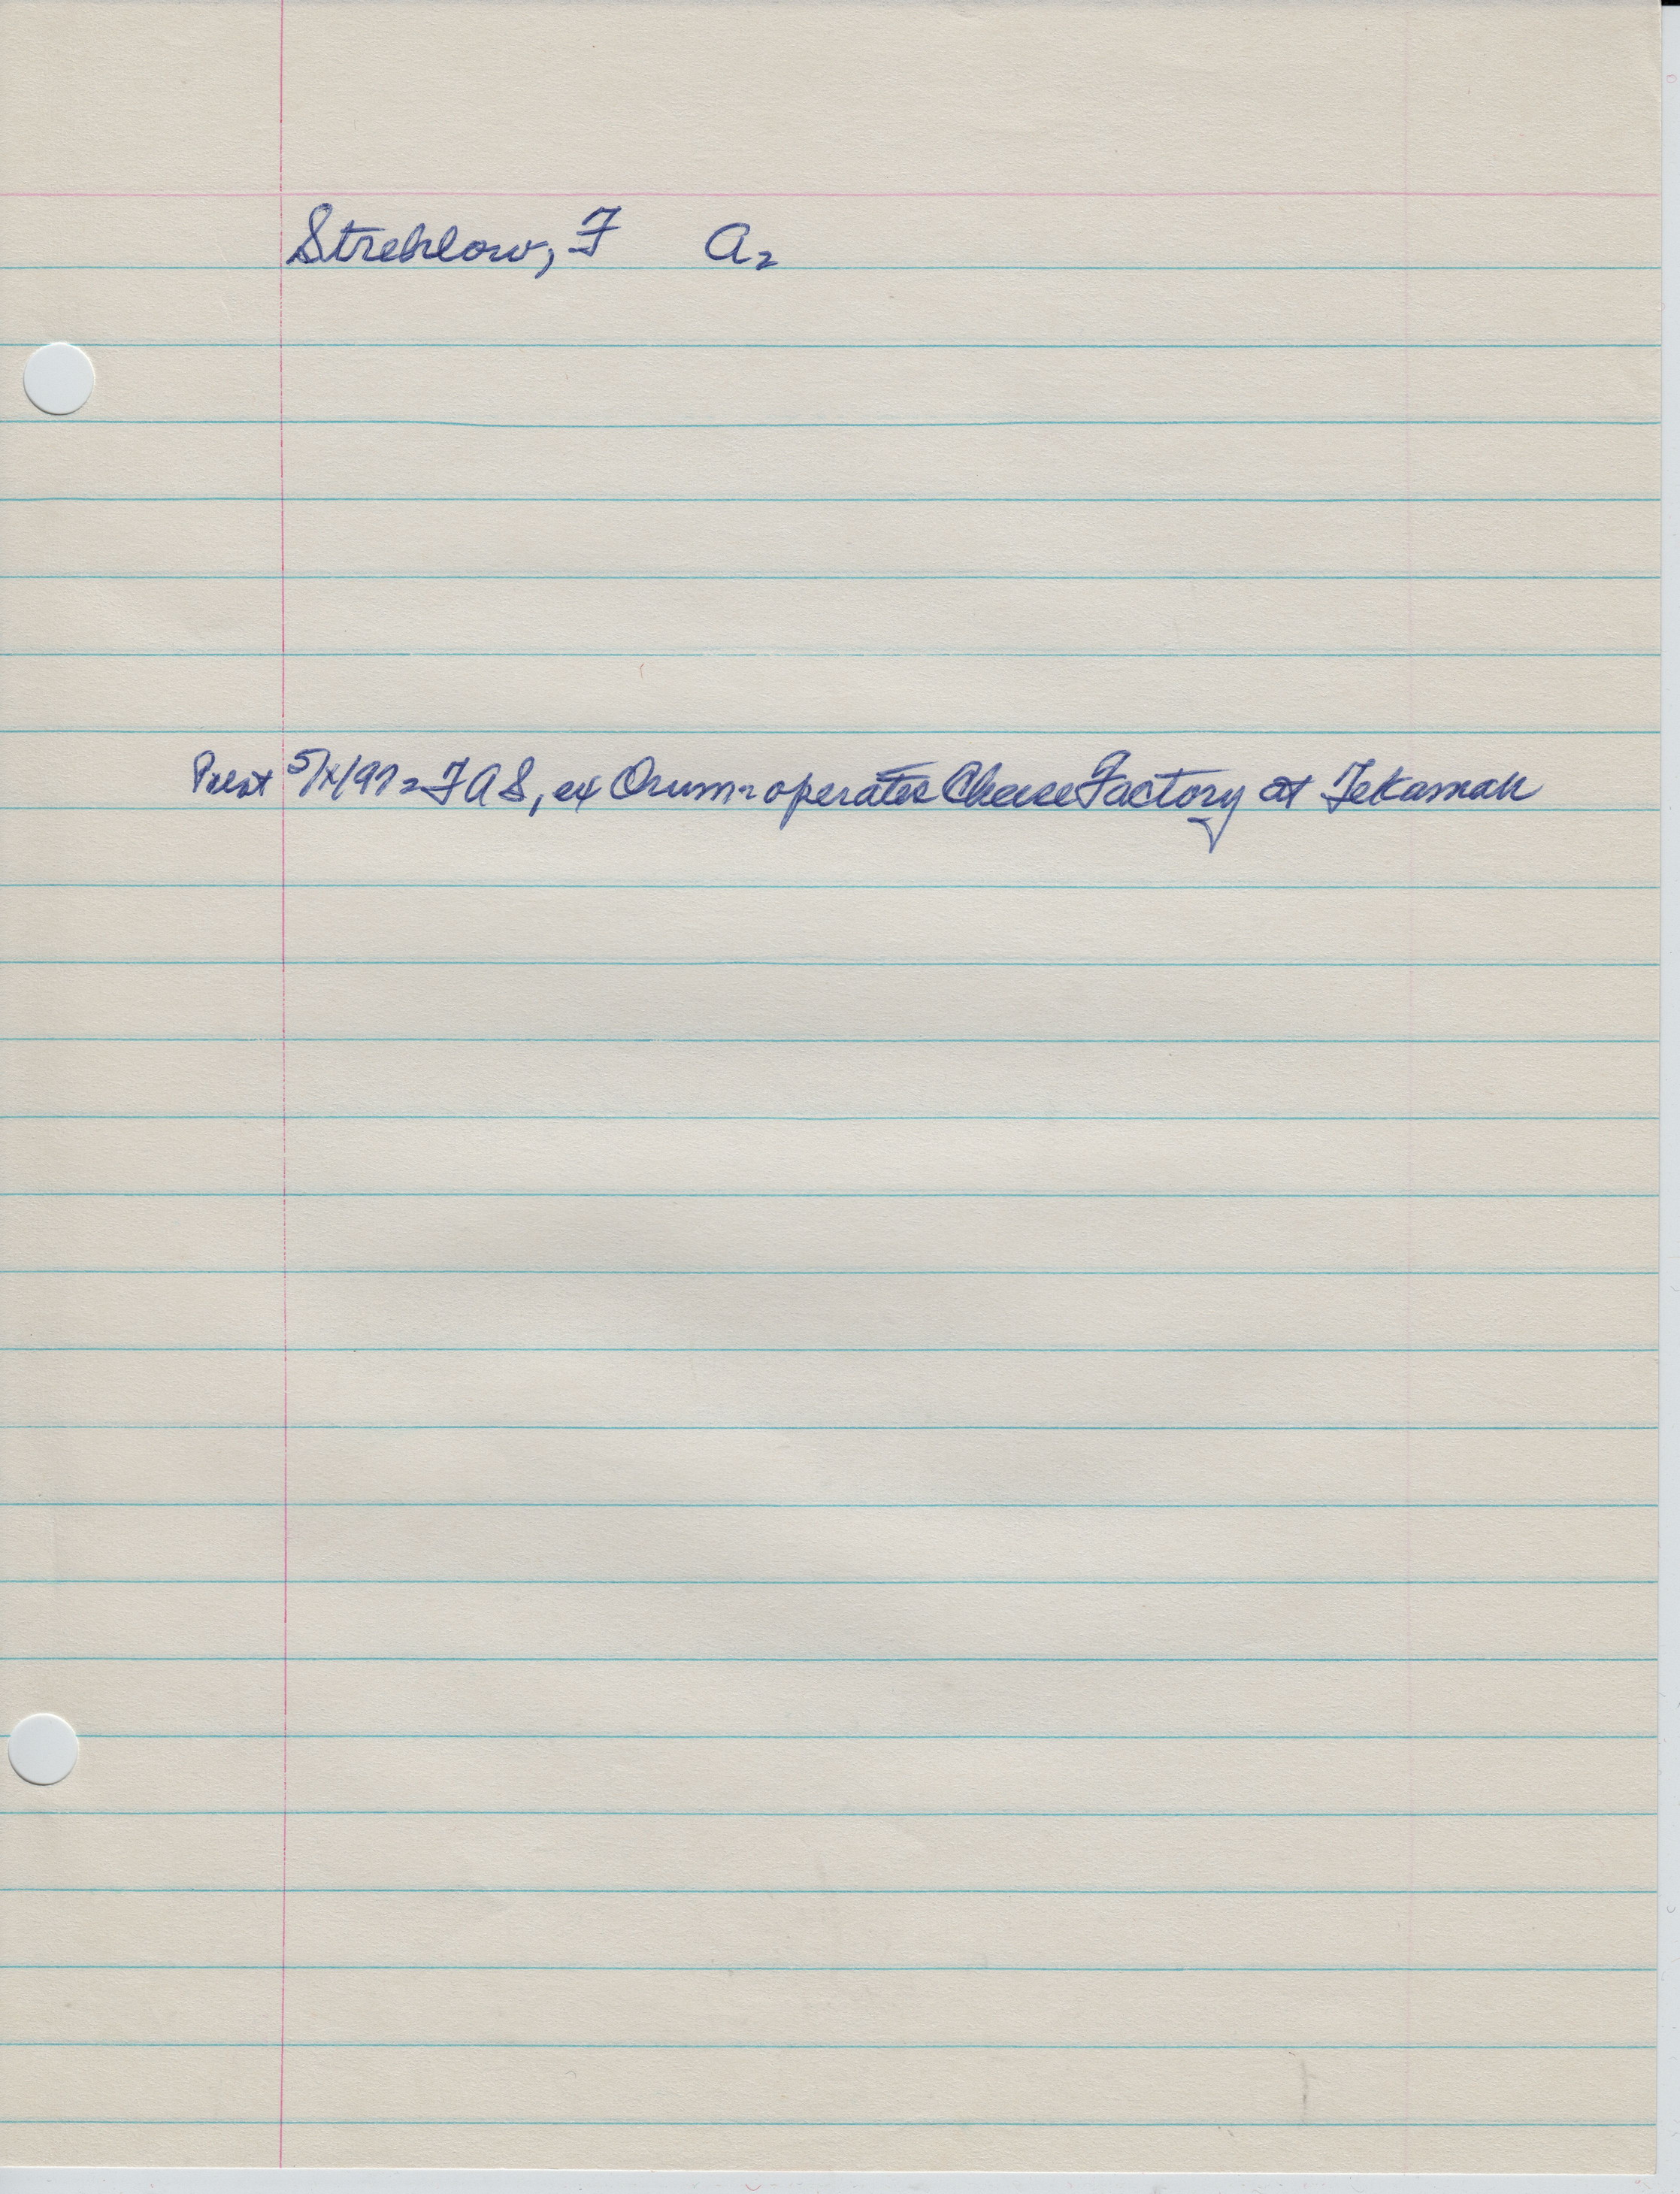 Strehlow, F A2
Pilot 5/X/1972 FAS, ex Orum - operates Cheese Factory at Tekamah